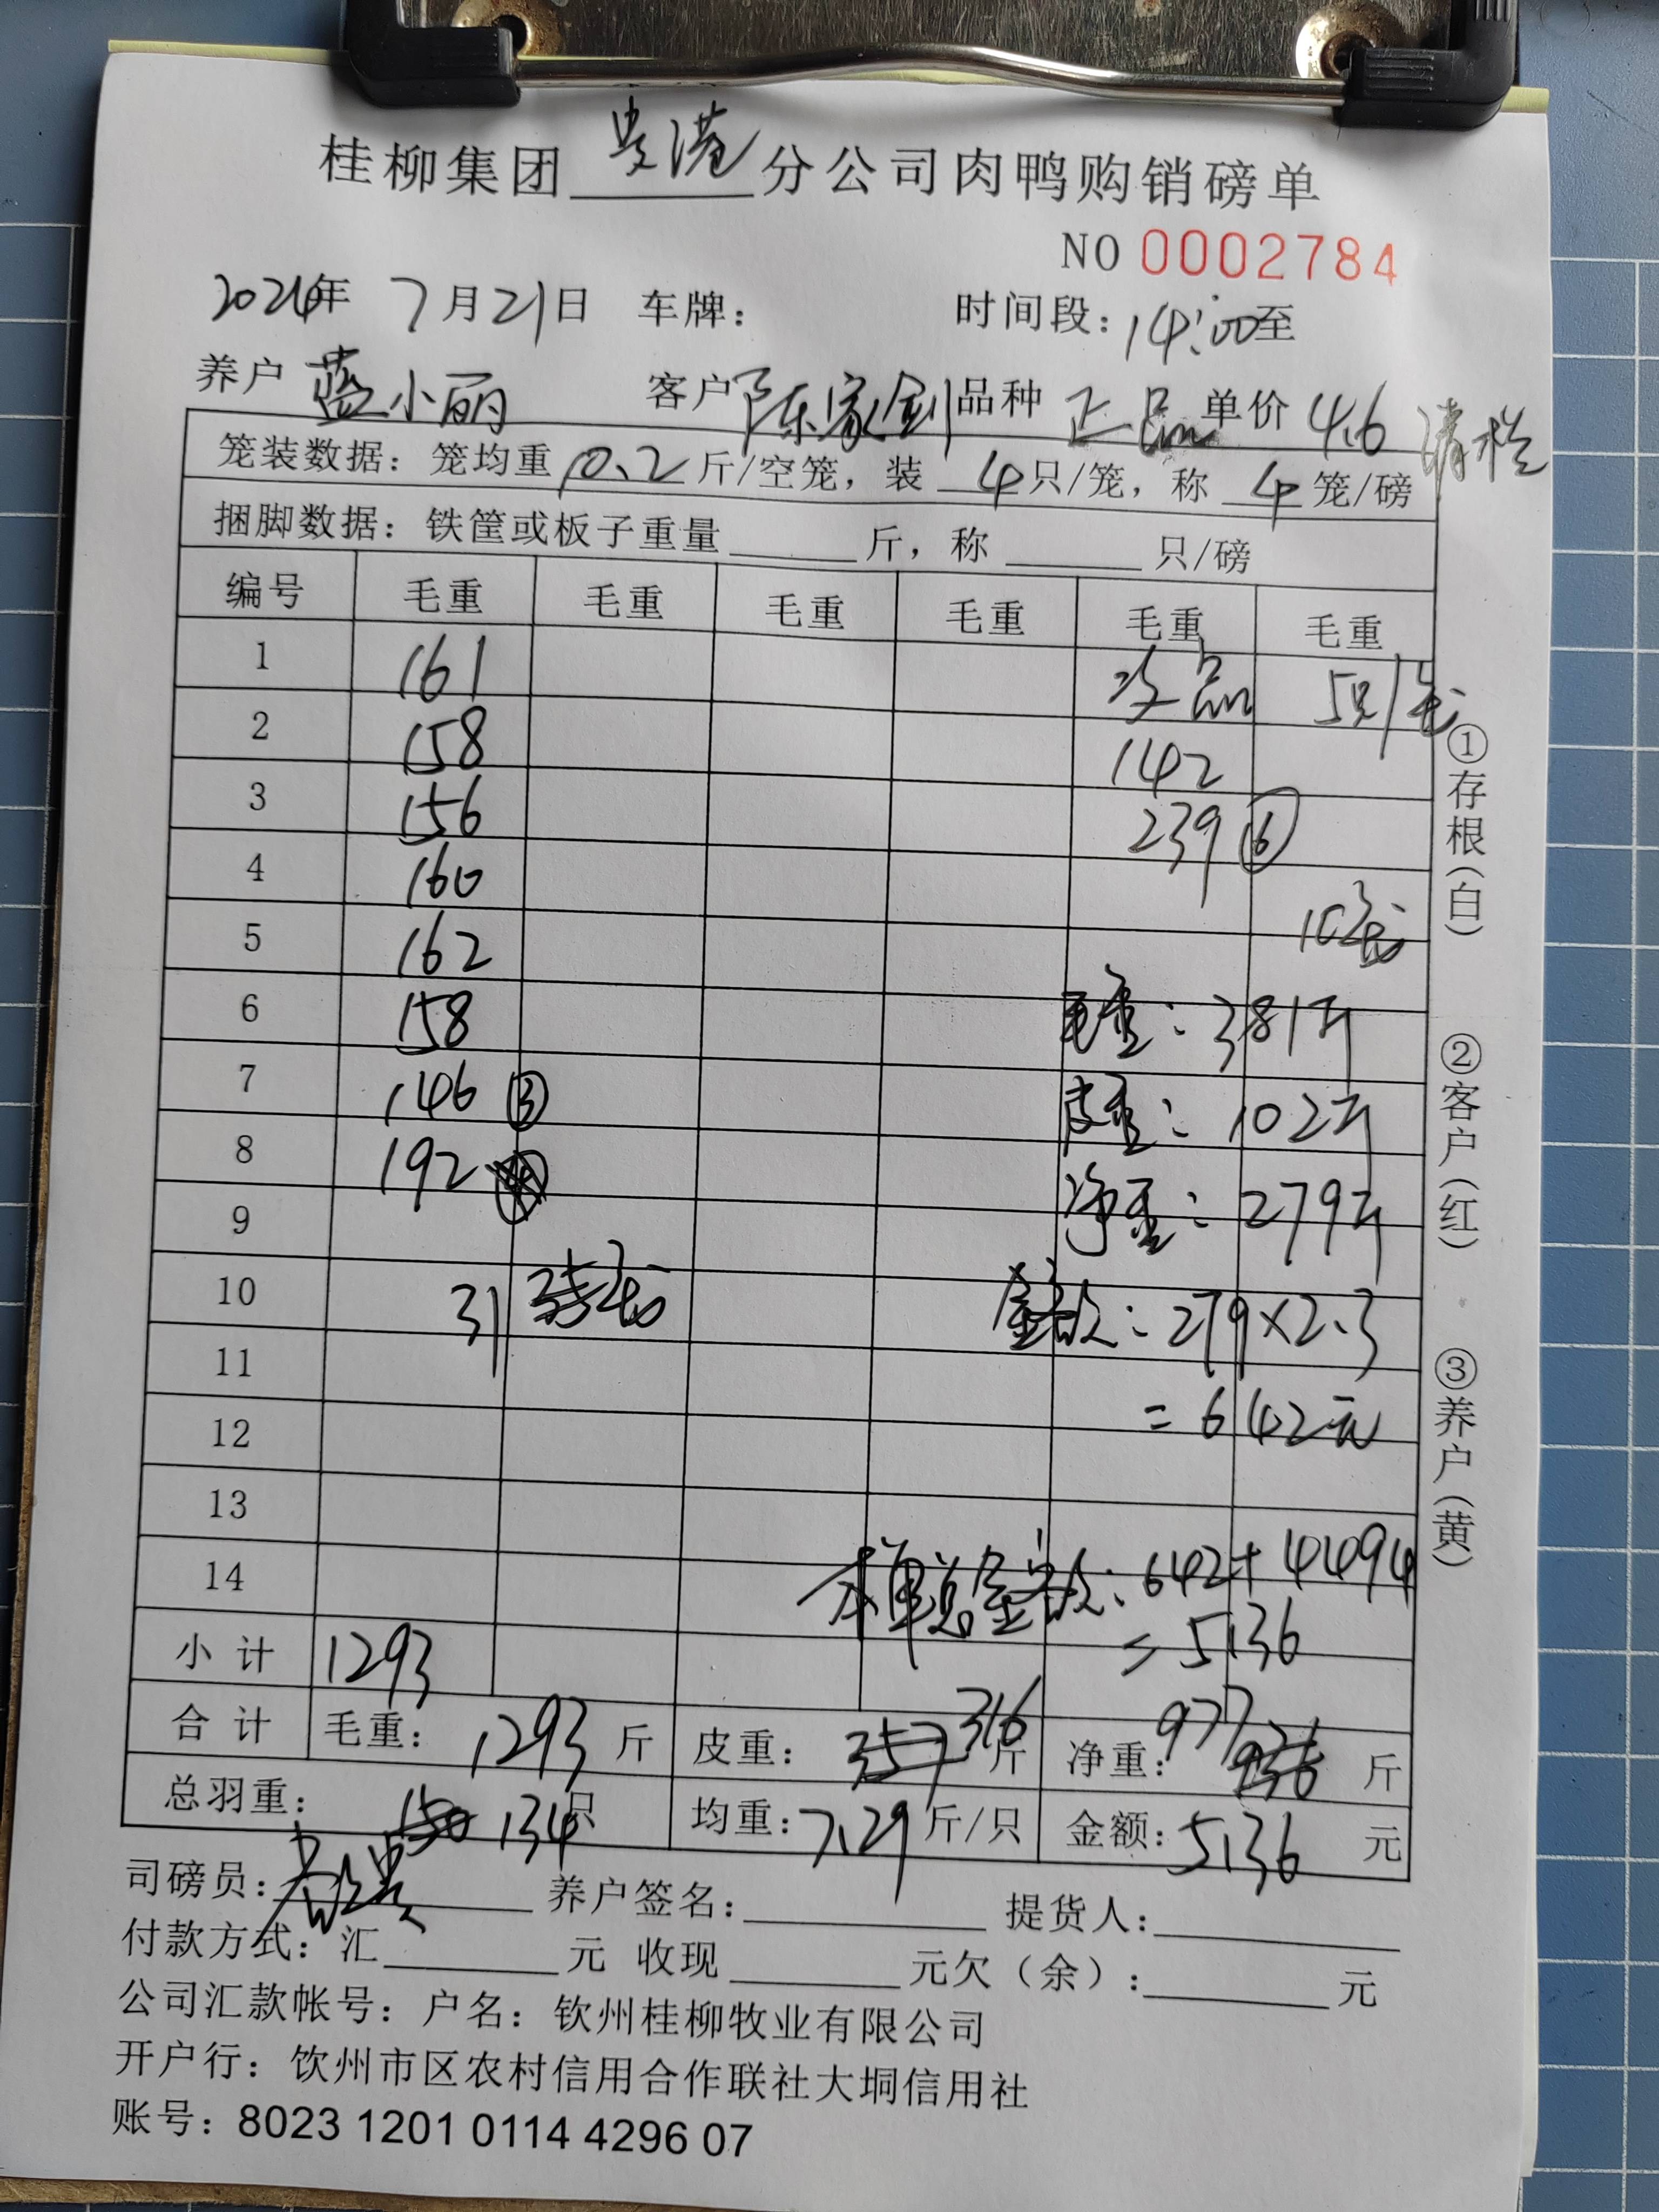 桂柳集团 贵港 分公司肉鸭购销磅单
NO 0002784
2024年 7月21日 车牌: 时间段:14:00至
养户 蓝小丽 客户 陈家剑 品种 正品 单价 4.6 清栏
笼装数据:笼均重 10.2 斤/空笼,装 4 只/笼,称 4 笼/磅
捆脚数据:铁筐或板子重量 斤,称 只/磅
编号 毛重 毛重 毛重 毛重 毛重 毛重
1 161 次品 5只/笼
2 158 142
3 156 239 ⑥
4 160
5 162 10笼
6 158 毛重:381斤
7 146 ③ 皮重:102斤
8 192
9 净重:279斤
10 31 笼 金额:279×2.3
11 =642元
12
13
14 本单总金额:642+4494
小计 1293 =5136
合计 毛重:1293 斤 皮重:357 316 斤 净重:977 936 斤
总羽重:150 134只 均重:7.29 斤/只 金额:5136 元
司磅员: 养户签名: 提货人:
付款方式:汇 元 收现 元欠(余): 元
公司汇款帐号:户名:钦州桂柳牧业有限公司
开户行:饮州市区农村信用合作联社大垌信用社
账号:8023 1201 0114 4296 07
①存根(白)
②客户(红)
③养户(黄)